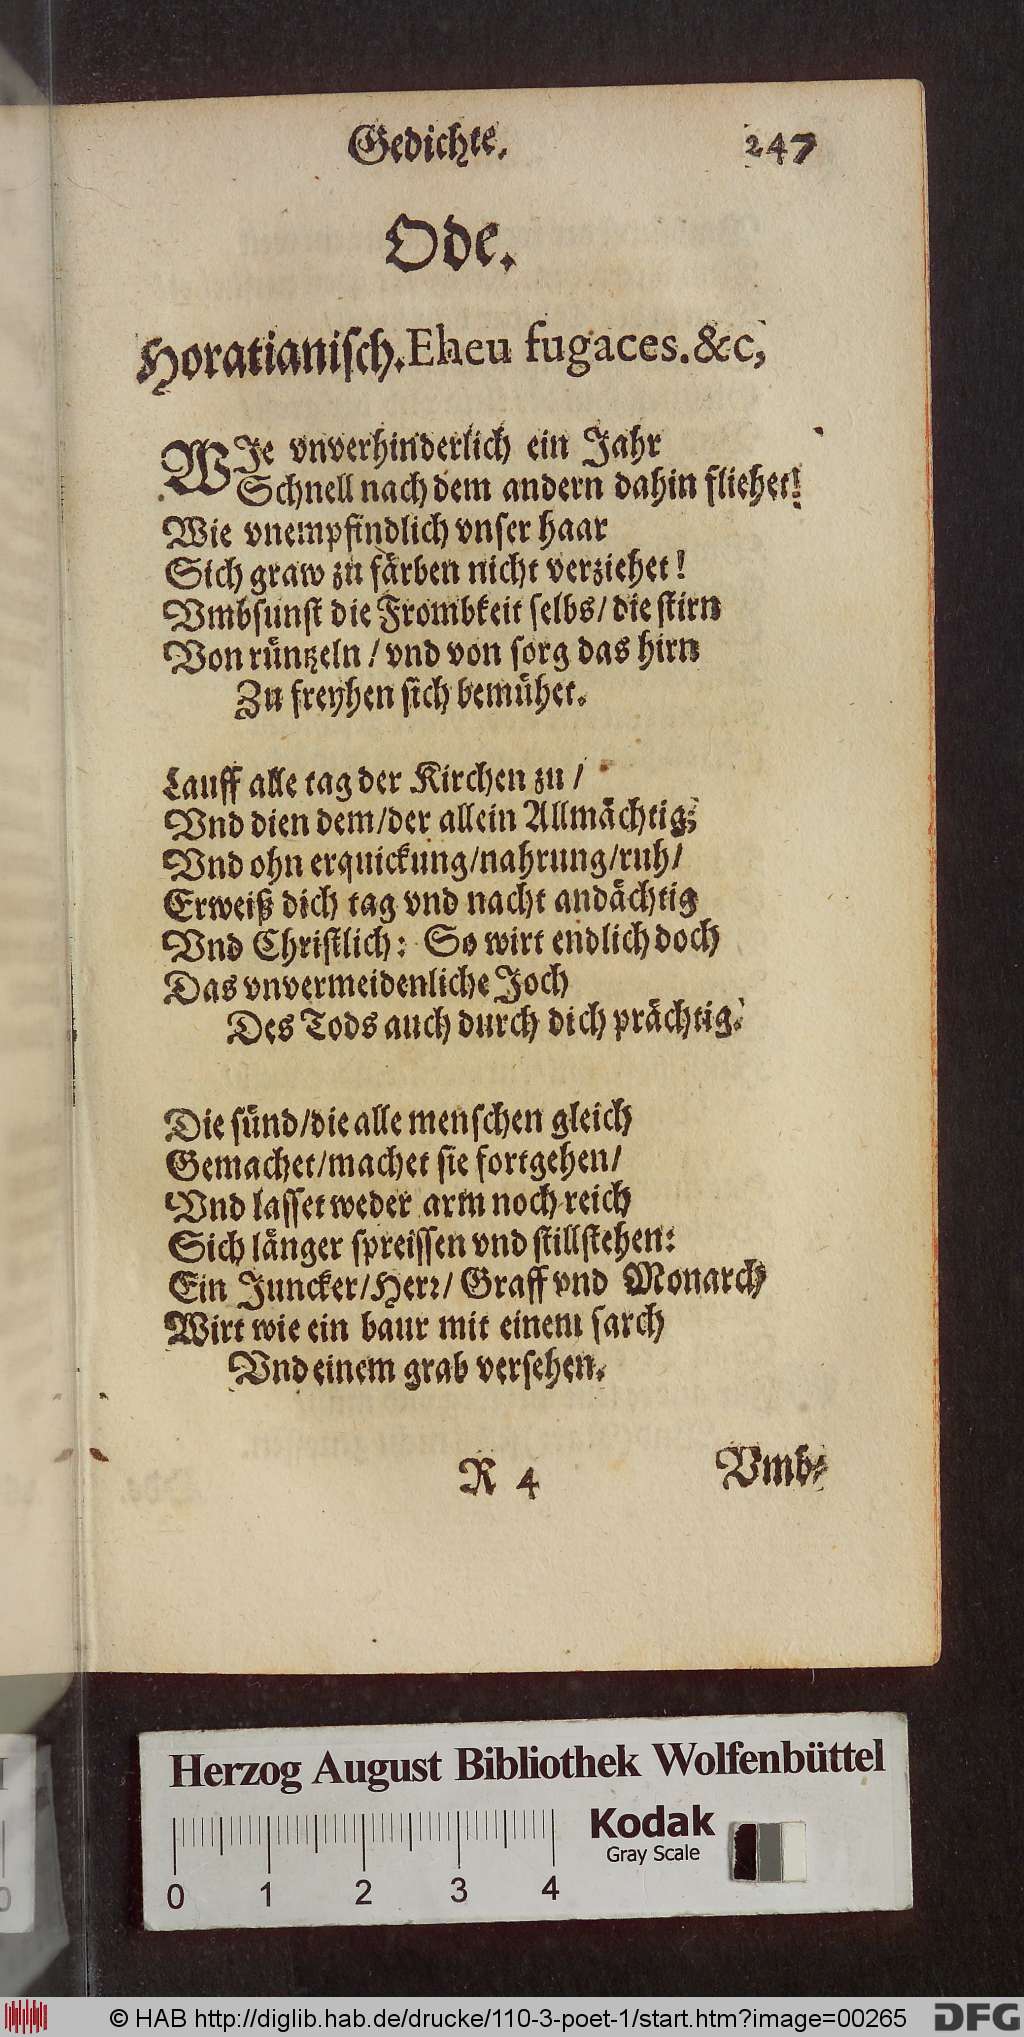 Gedichte. 247
Ode.
Horatianisch. Eheu fugaces. &c,
WIe vnverhinderlich ein Jahr
Schnell nach dem andern dahin fliehet!
Wie vnempfindlich vnser haar
Sich graw zu färben nicht verziehet!
Vmbsunst die Frombkeit selbs/ die stirn
Von rüntzeln / vnd von sorg das hirn
Zu freyhen sich bemühet.
Lauff alle tag der Kirchen zu /
Vnd dien dem/der allein Allmächtig;
Vnd ohn erquickung/nahrung/ruh/
Erweiß dich tag vnd nacht andächtig
Vnd Christlich: So wirt endlich doch
Das vnvermeidenliche Joch
Des Tods auch durch dich prächtig.
Die sünd/die alle menschen gleich
Gemachet/machet sie fortgehen/
Vnd lasset weder arm noch reich
Sich länger spreissen vnd stillstehen:
Ein Juncker/Herr/ Graff vnd Monarch
Wirt wie ein baur mit einem sarch
Vnd einem grab versehen.
R 4 Vmb-
Herzog August Bibliothek Wolfenbüttel
Kodak
Gray Scale
0 1 2 3 4
© HAB http://diglib.hab.de/drucke/110-3-poet-1/start.htm?image=00265 DFG